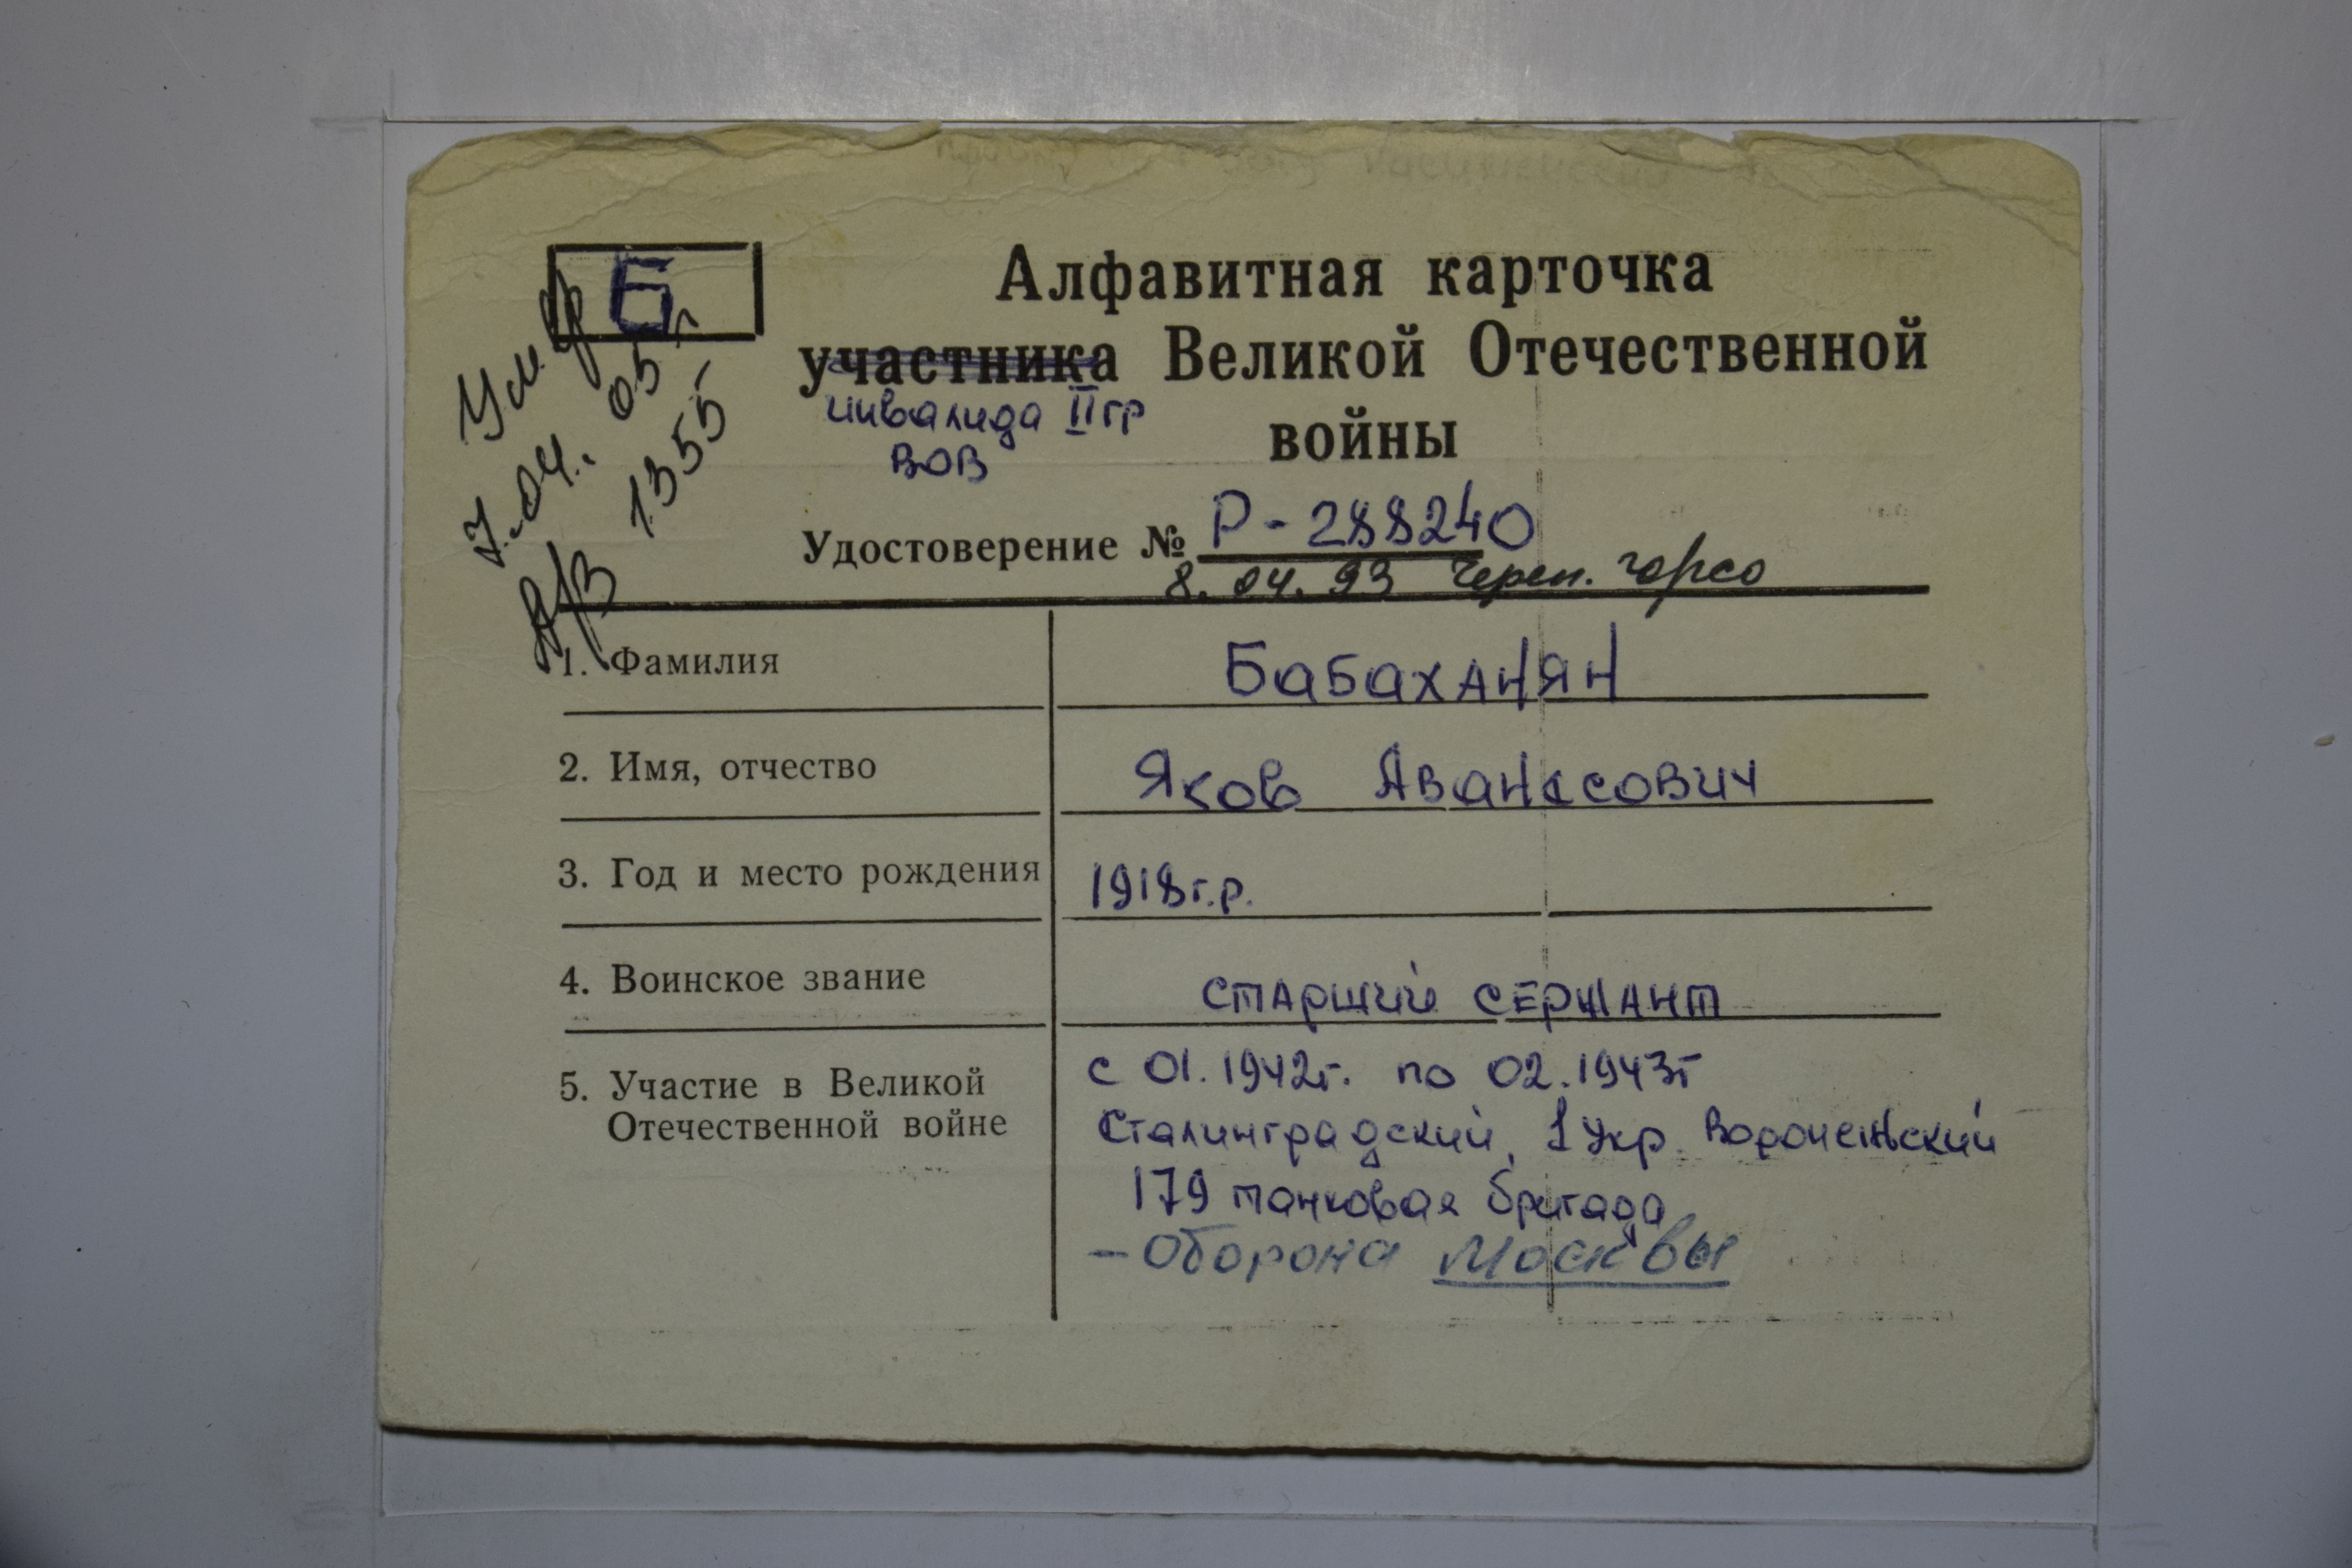 Б
Умер
7.04.05г
А/З 1355
Алфавитная карточка
участника Великой Отечественной
инвалида II гр
войны
ВОВ
Удостоверение № Р-288240
8.04.93 Череп. горсо
1. Фамилия Бабаханян
2. Имя, отчество Яков Аванесович
3. Год и место рождения 1918г.р.
4. Воинское звание старший сержант
5. Участие в Великой с 01.1942г. по 02.1943г
Отечественной войне Сталинградский, 1 Укр. Воронежский
179 танковая бригада
- Оборона Москвы